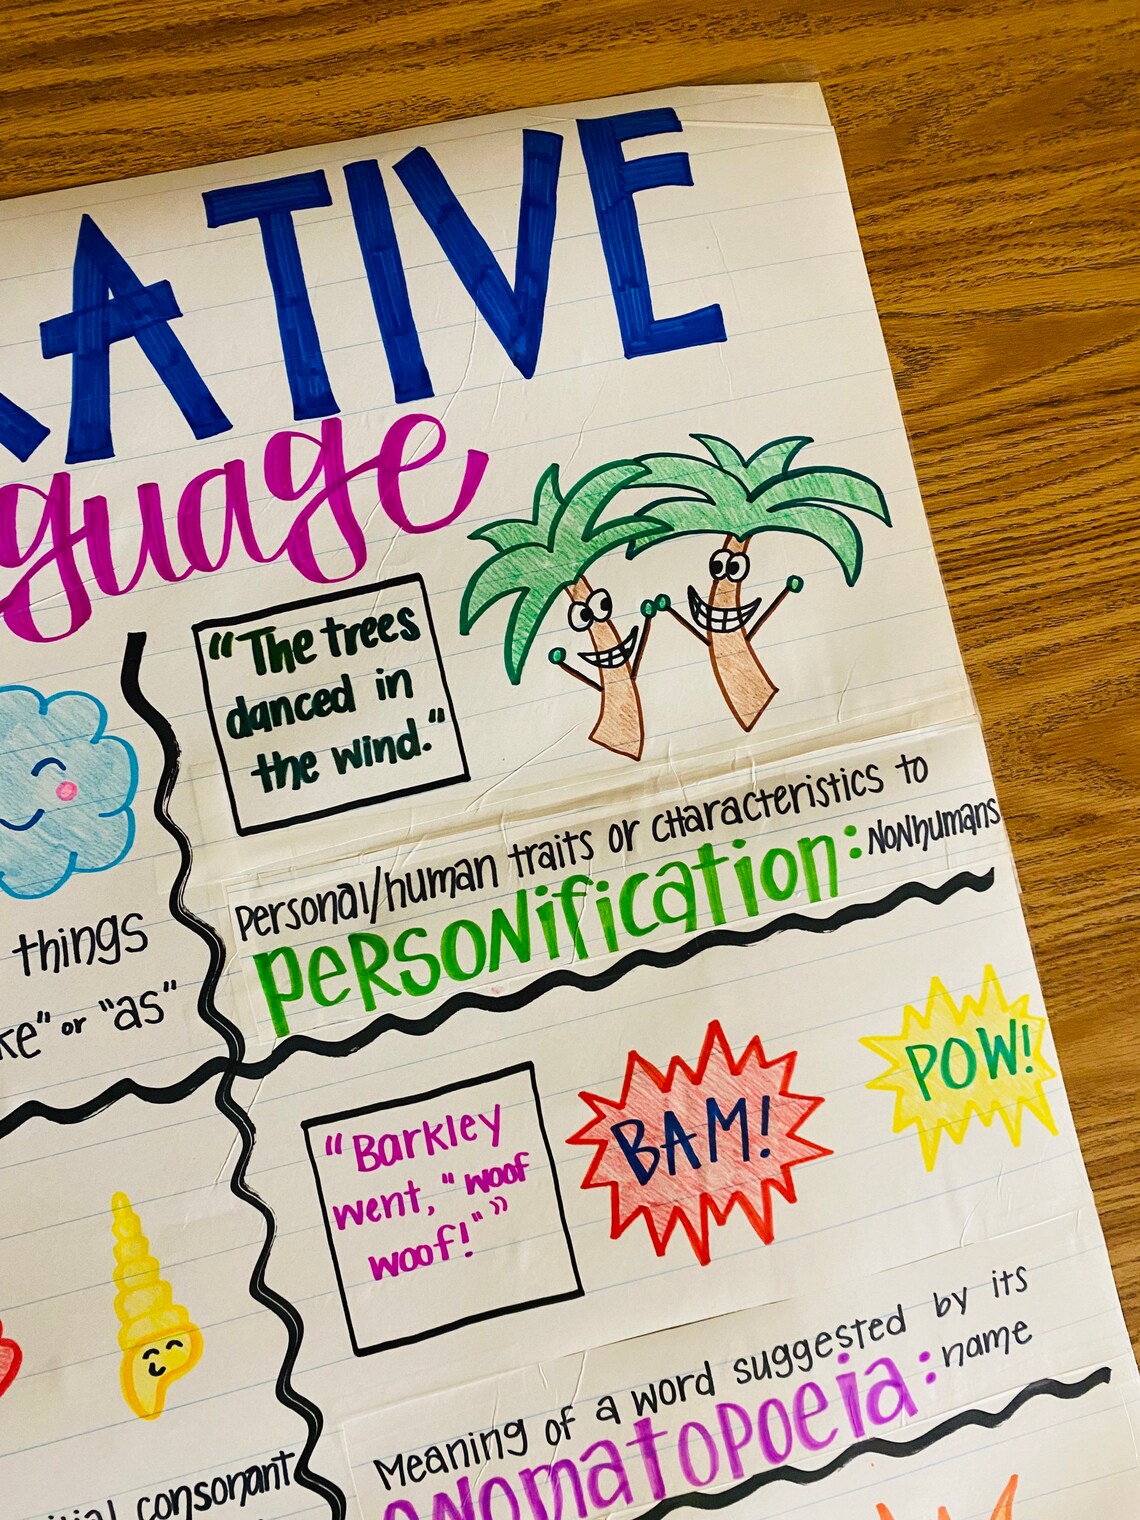 ATIVE
guage
"The trees
danced in
the wind."
Personal/human traits or characteristics to
Personification: Nonhumans
things
"as"
or
"Barkley
went, "woof
woof!""
BAM!
POW!
Meaning of a word suggested by its
onomatopoeia: name
consonant